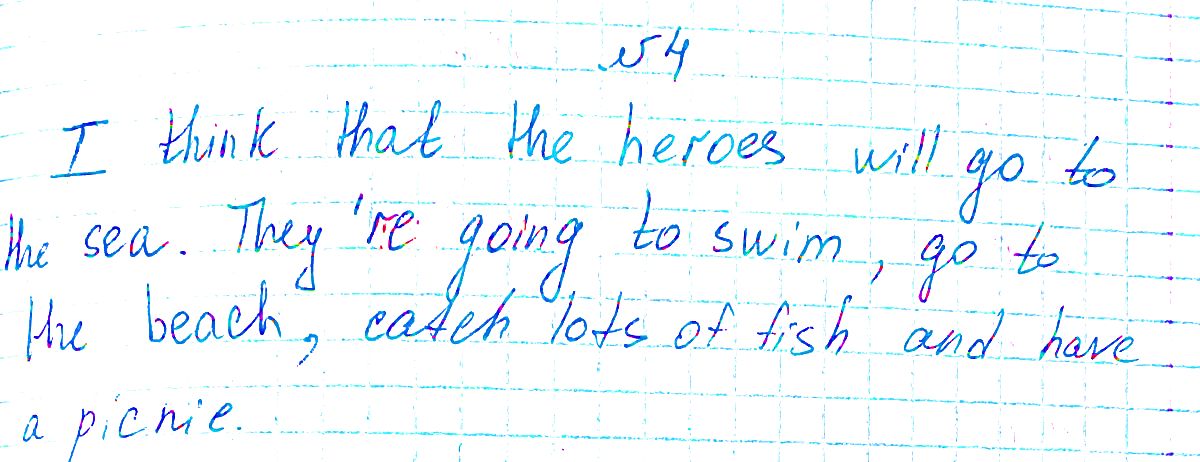 №4
I think that the heroes will go to
the sea. They're going to swim, go to
the beach, catch lots of fish and have
a picnic.